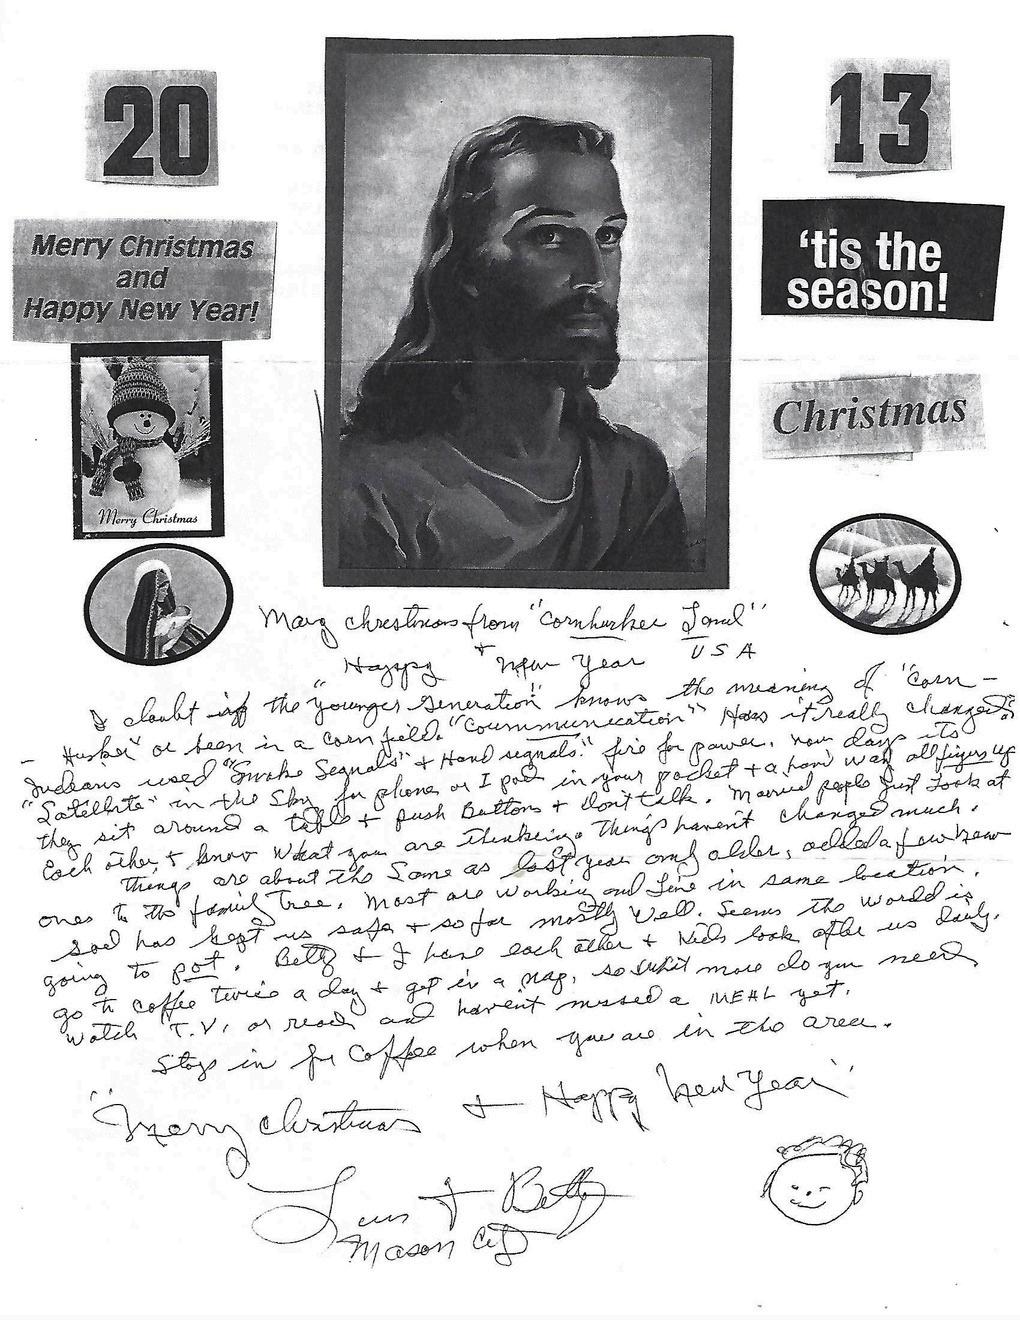 20
13
Merry Christmas
and
Happy New Year!
'tis the
season!
Christmas
Merry Christmas
Mary christmas from "Cornhusker Land"
Happy + New Year USA
I doubt if the "younger Generation" knows the meaning of "Corn-
- Husker" or been in a corn field. "Communication" Has it really changed?
Indians used "Smoke Signals" + Hand signals." fire for power. now days its
"Satellite" in the Sky for phones or I pod in your pocket + a hand wave all fingers up
they sit around a table + push Buttons + don't talk. Married people Just Look at
Each other + know what you are thinking. Things haven't changed much.
Things are about the Same as last year only older, added a few new
ones to the family Tree. Most are working and Live in same location.
God has kept us safe + so far mostly Well. Seems the world is
going to pot. Betty + I have each other + kids look after us daily.
go to coffee twice a day + get in a nap, so what more do you need
Watch T.V. or read and haven't missed a MEAL yet.
Stop in for Coffee when you are in the area.
"Merry christmas + Happy New Year"
+ Betty
Mason City